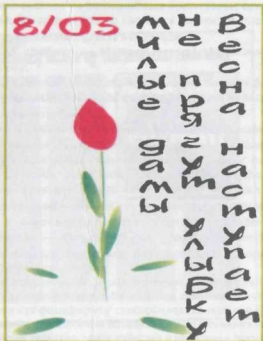 8/03
Весна наступает
не прячут улыбку
милые дамы